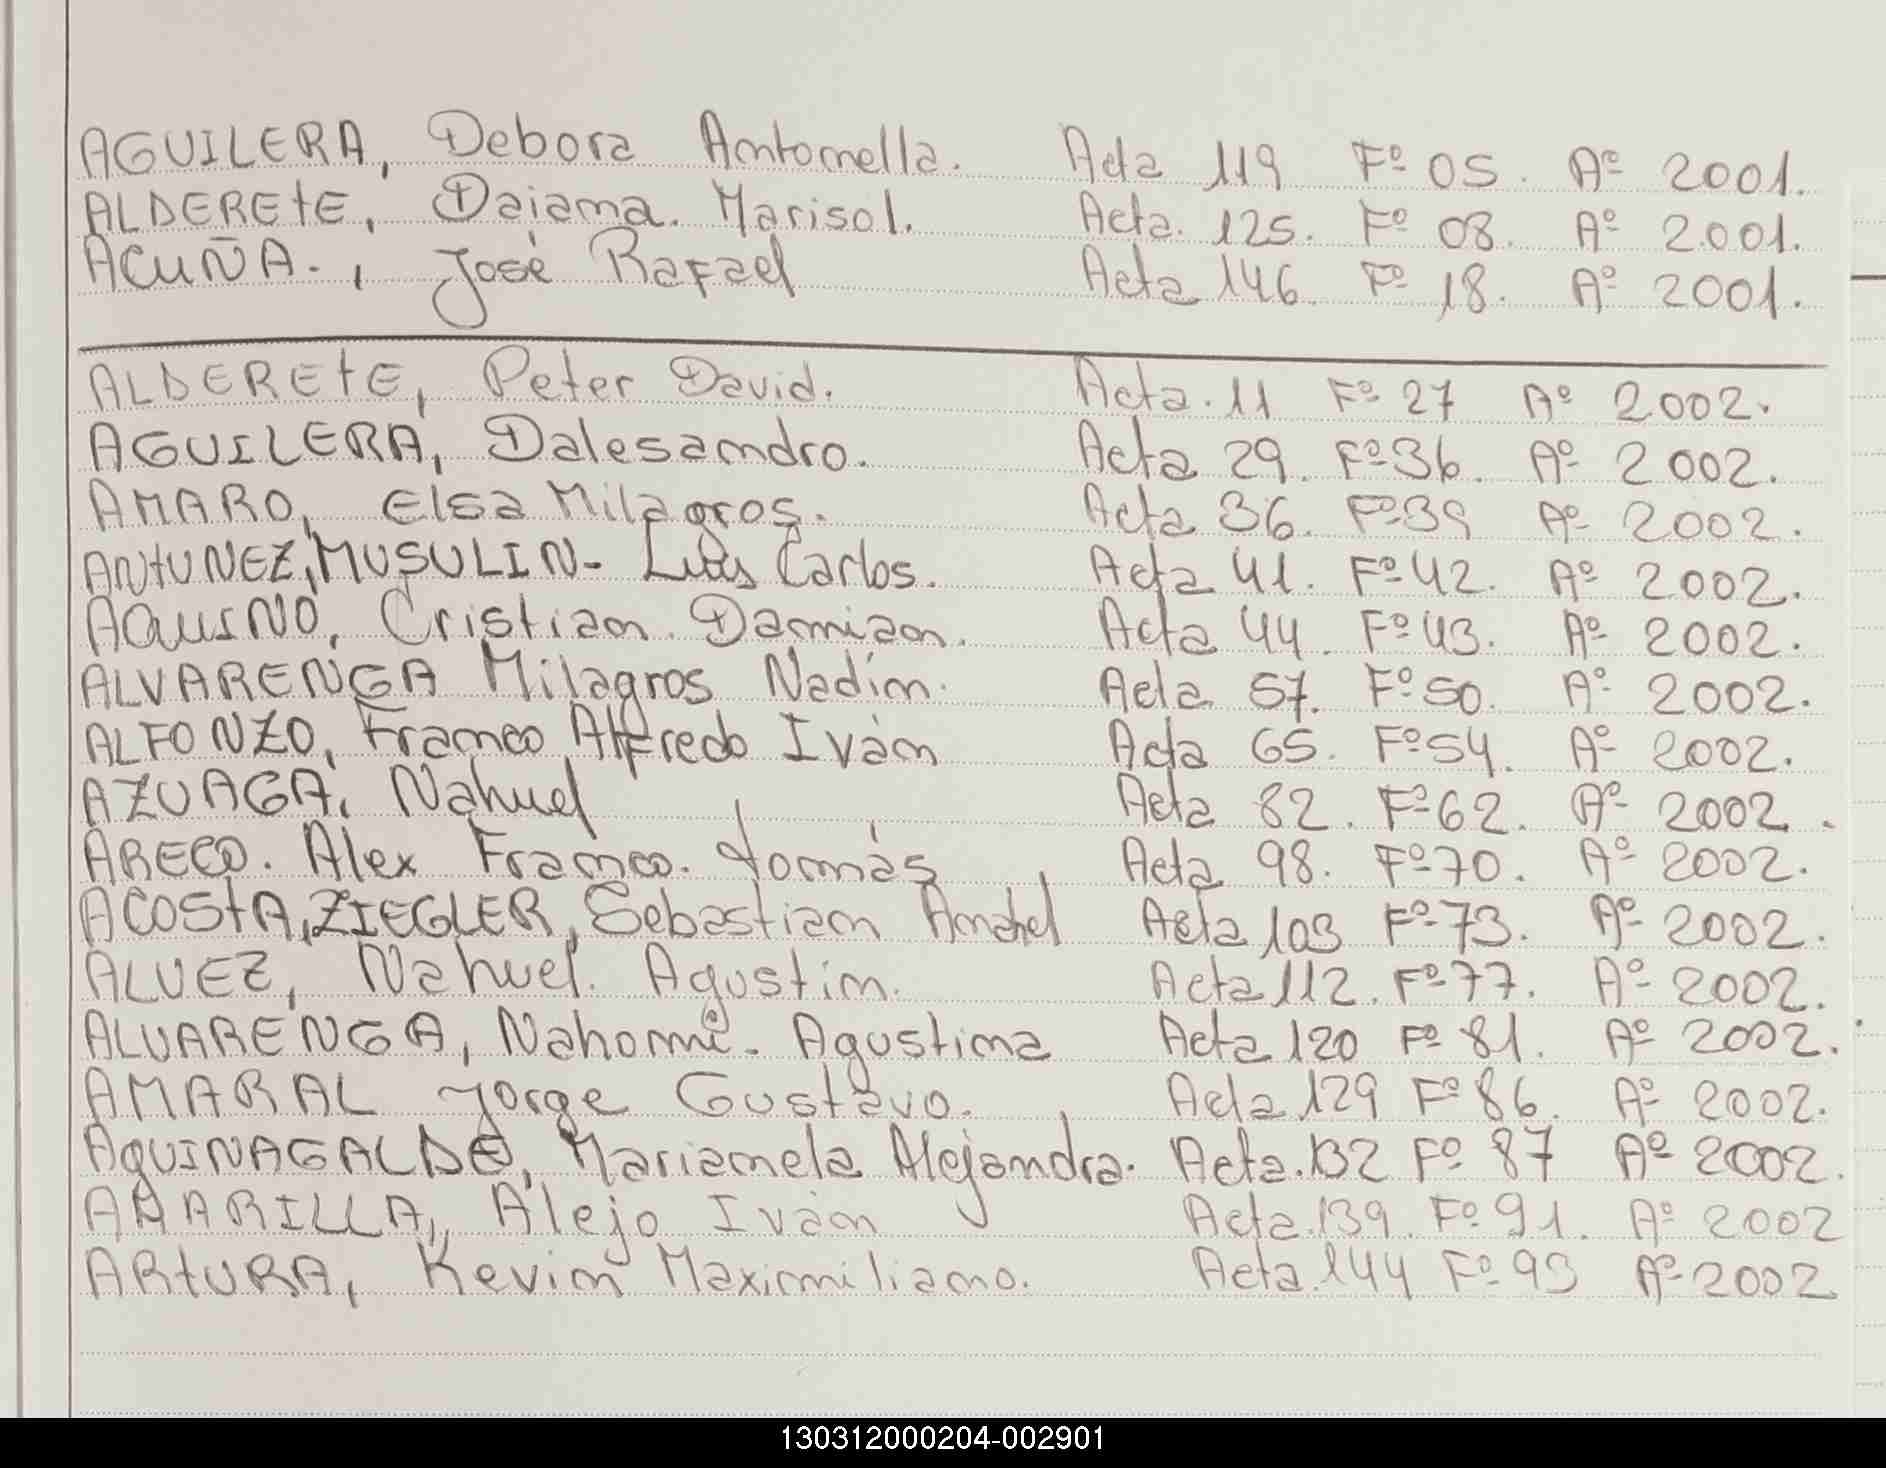 AGUILERA, Debora Antonella. Acta 119 Fº 05. Aº 2001.
ALDERETE, Daiana. Marisol. Acta. 125. Fº 08. Aº 2001.
ACUÑA., José Rafael Acta 146. Fº 18. Aº 2001.
ALDERETE, Peter David. Acta. 11 Fº 27 Aº 2002.
AGUILERA, Dalesandro. Acta 29. Fº 36. Aº 2002.
AMARO, Elsa Milagros. Acta 36. Fº 39 Aº 2002.
ANTUNEZ, MUSULIN- Luis Carlos. Acta 41. Fº 42. Aº 2002.
AQUINO, Cristian. Damian. Acta 44. Fº 43. Aº 2002.
ALVARENGA Milagros Nadin. Acta 57. Fº 50. Aº 2002.
ALFONZO, Franco Alfredo Iván Acta 65. Fº 54. Aº 2002.
AZUAGA, Nahuel Acta 82. Fº 62. Aº 2002.
ARECO. Alex Franco. Tomás Acta 98. Fº 70. Aº 2002.
ACOSTA, ZIEGLER, Sebastian Acta 103 Fº 73. Aº 2002.
ALVEZ, Nahuel. Agustin. Acta 112. Fº 77. Aº 2002.
ALVARENGA, Nahomi. Agustina Acta 120 Fº 81. Aº 2002.
AMARAL Jorge Gustavo. Acta 129 Fº 86. Aº 2002.
AQUINAGALDE, Marianela Alejandra. Acta. 132 Fº 87 Aº 2002.
AMARILLA, Alejo Iván Acta. 139. Fº 91. Aº 2002
ARTURA, Kevin Maximiliano. Acta. 144 Fº 93 Aº 2002
130312000204-002901